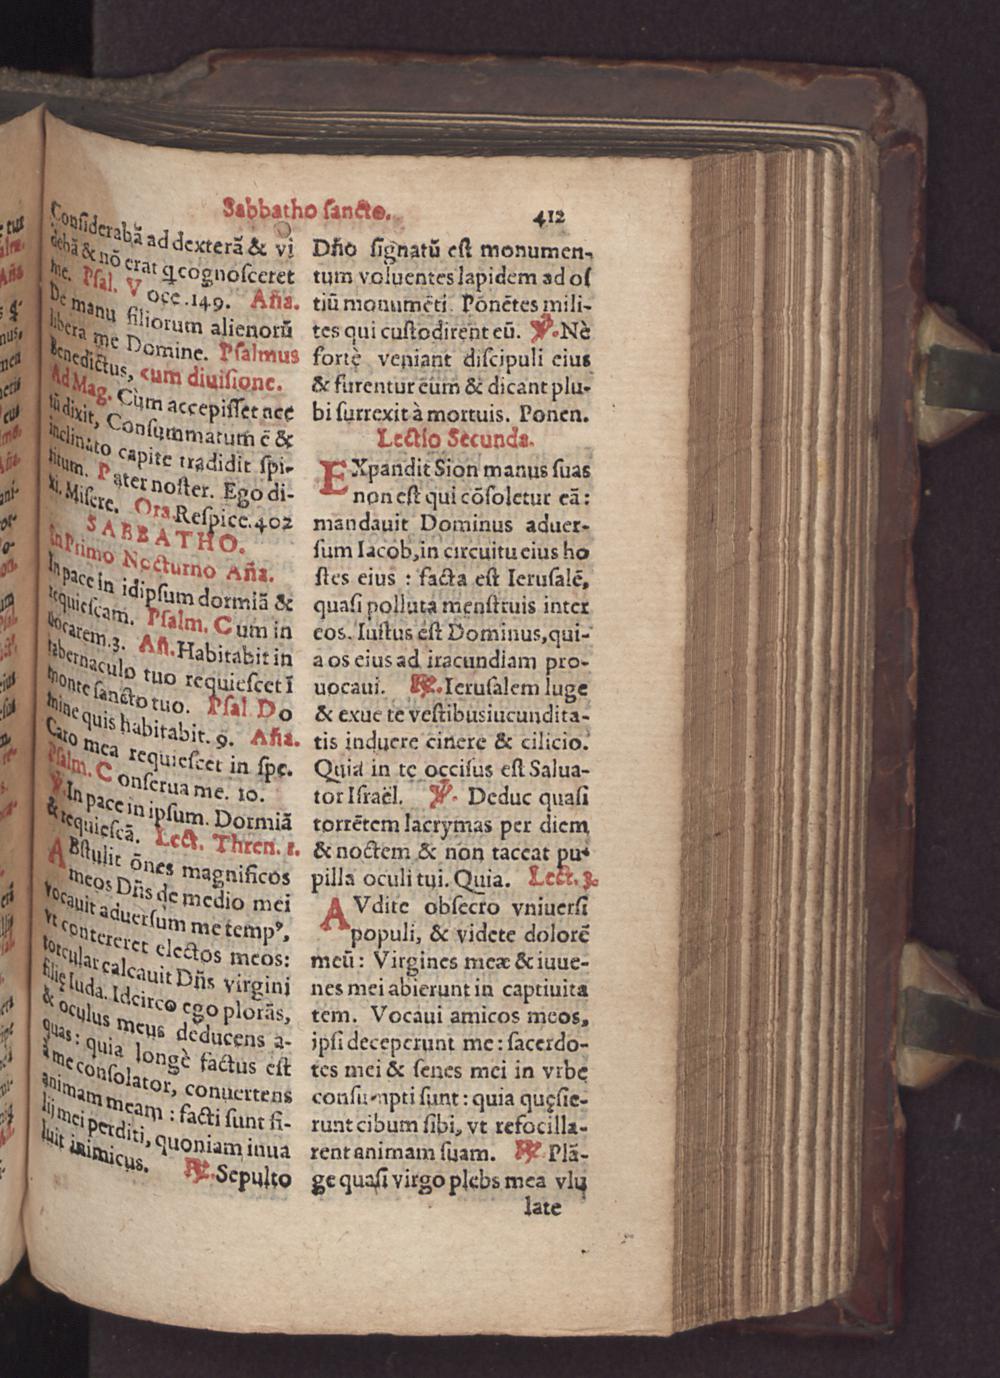 Sabbatho sancto. 412
Considerabā ad dexterā & vi
debā & nō erat q cognosceret
me. Psal. Voce .149. Aña.
De manu filiorum alienorū
libera me Domine. Psalmus
Benedictus, cum diuisione.
Ad Mag. Cùm accepisset ace
tū dixit, Consummatum ē &
inclinato capite tradidit spi-
ritum. Pater noster. Ego di-
xi. Misere. Ora. Respice. 402
SABBATHO.
In Primo Nocturno Aña.
In pace in idipsum dormiā &
requiescam. Psalm. Cum in
uocarem. 3. Añ. Habitabit in
tabernaculo tuo requiescet ī
monte sancto tuo. Psal Do
mine quis habitabit. 9. Aña.
Caro mea requiescet in spe.
Psalm. Conserua me. 10.
℣. In pace in ipsum. Dormiā
& requiescā. Lect. Thren. 1.
ABstulit ōnes magnificos
meos Dñs de medio mei
vocauit aduersum me tempꝰ,
vt contereret electos meos:
torcular calcauit Dñs virgini
filię Iuda. Idcirco ego plorās,
& oculus meus deducens a-
quas: quia longè factus est
à me consolator, conuertens
animam meam: facti sunt fi-
lij mei perditi, quoniam inua
luit inimicus. ℟. Sepulto
Dño signatū est monumen-
tum voluentes lapidem ad os
tiū monumēti. Ponētes mili-
tes qui custodirent eū. ℣. Nè
fortè veniant discipuli eius
& furentur eum & dicant ple-
bi surrexit à mortuis. Ponen.
Lectio Secunda.
EXpandit Sion manus suas
non est qui cōsoletur eā:
mandauit Dominus aduer-
sum Iacob, in circuitu eius ho
stes eius: facta est Ierusalē,
quasi polluta menstruis inter
eos. Iustus est Dominus, qui-
a os eius ad iracundiam pro-
uocaui. ℟. Ierusalem luge
& exue te vestibus iucundita-
tis induere cinere & cilicio.
Quia in te occisus est Salua-
tor Israël. ℣. Deduc quasi
torrētem lacrymas per diem
& noctem & non taceat pu-
pilla oculi tui. Quia. Lect. 3.
AVdite obsecro vniuersi
populi, & videte dolorē
meū: Virgines meæ & iuue-
nes mei abierunt in captiuita
tem. Vocaui amicos meos,
ipsi deceperunt me: sacerdo-
tes mei & senes mei in vrbe
consumpti sunt: quia quęsie-
runt cibum sibi, vt refocilla-
rent animam suam. ℟. Plā-
ge quasi virgo plebs mea vlu
late